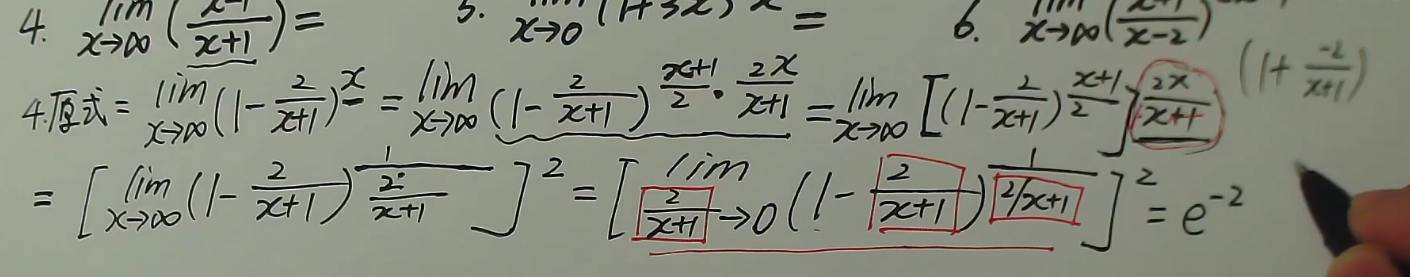 4. lim x→∞ (x-1/x+1) = 5. lim x→0 (1+3x) x = 6. lim x→∞ (x+1/x-2)
4.原式 = lim x→∞ (1 - 2/x+1)^x = lim x→∞ (1 - 2/x+1)^(x+1/2 · 2x/x+1) = lim x→∞ [(1 - 2/x+1)^(x+1/2)]^(2x/x+1) (1 + -2/x+1)
= [lim x→∞ (1 - 2/x+1)^(1/(2/x+1))]^2 = [lim 2/x+1→0 (1 - 2/x+1)^(1/(2/x+1))]^2 = e^-2